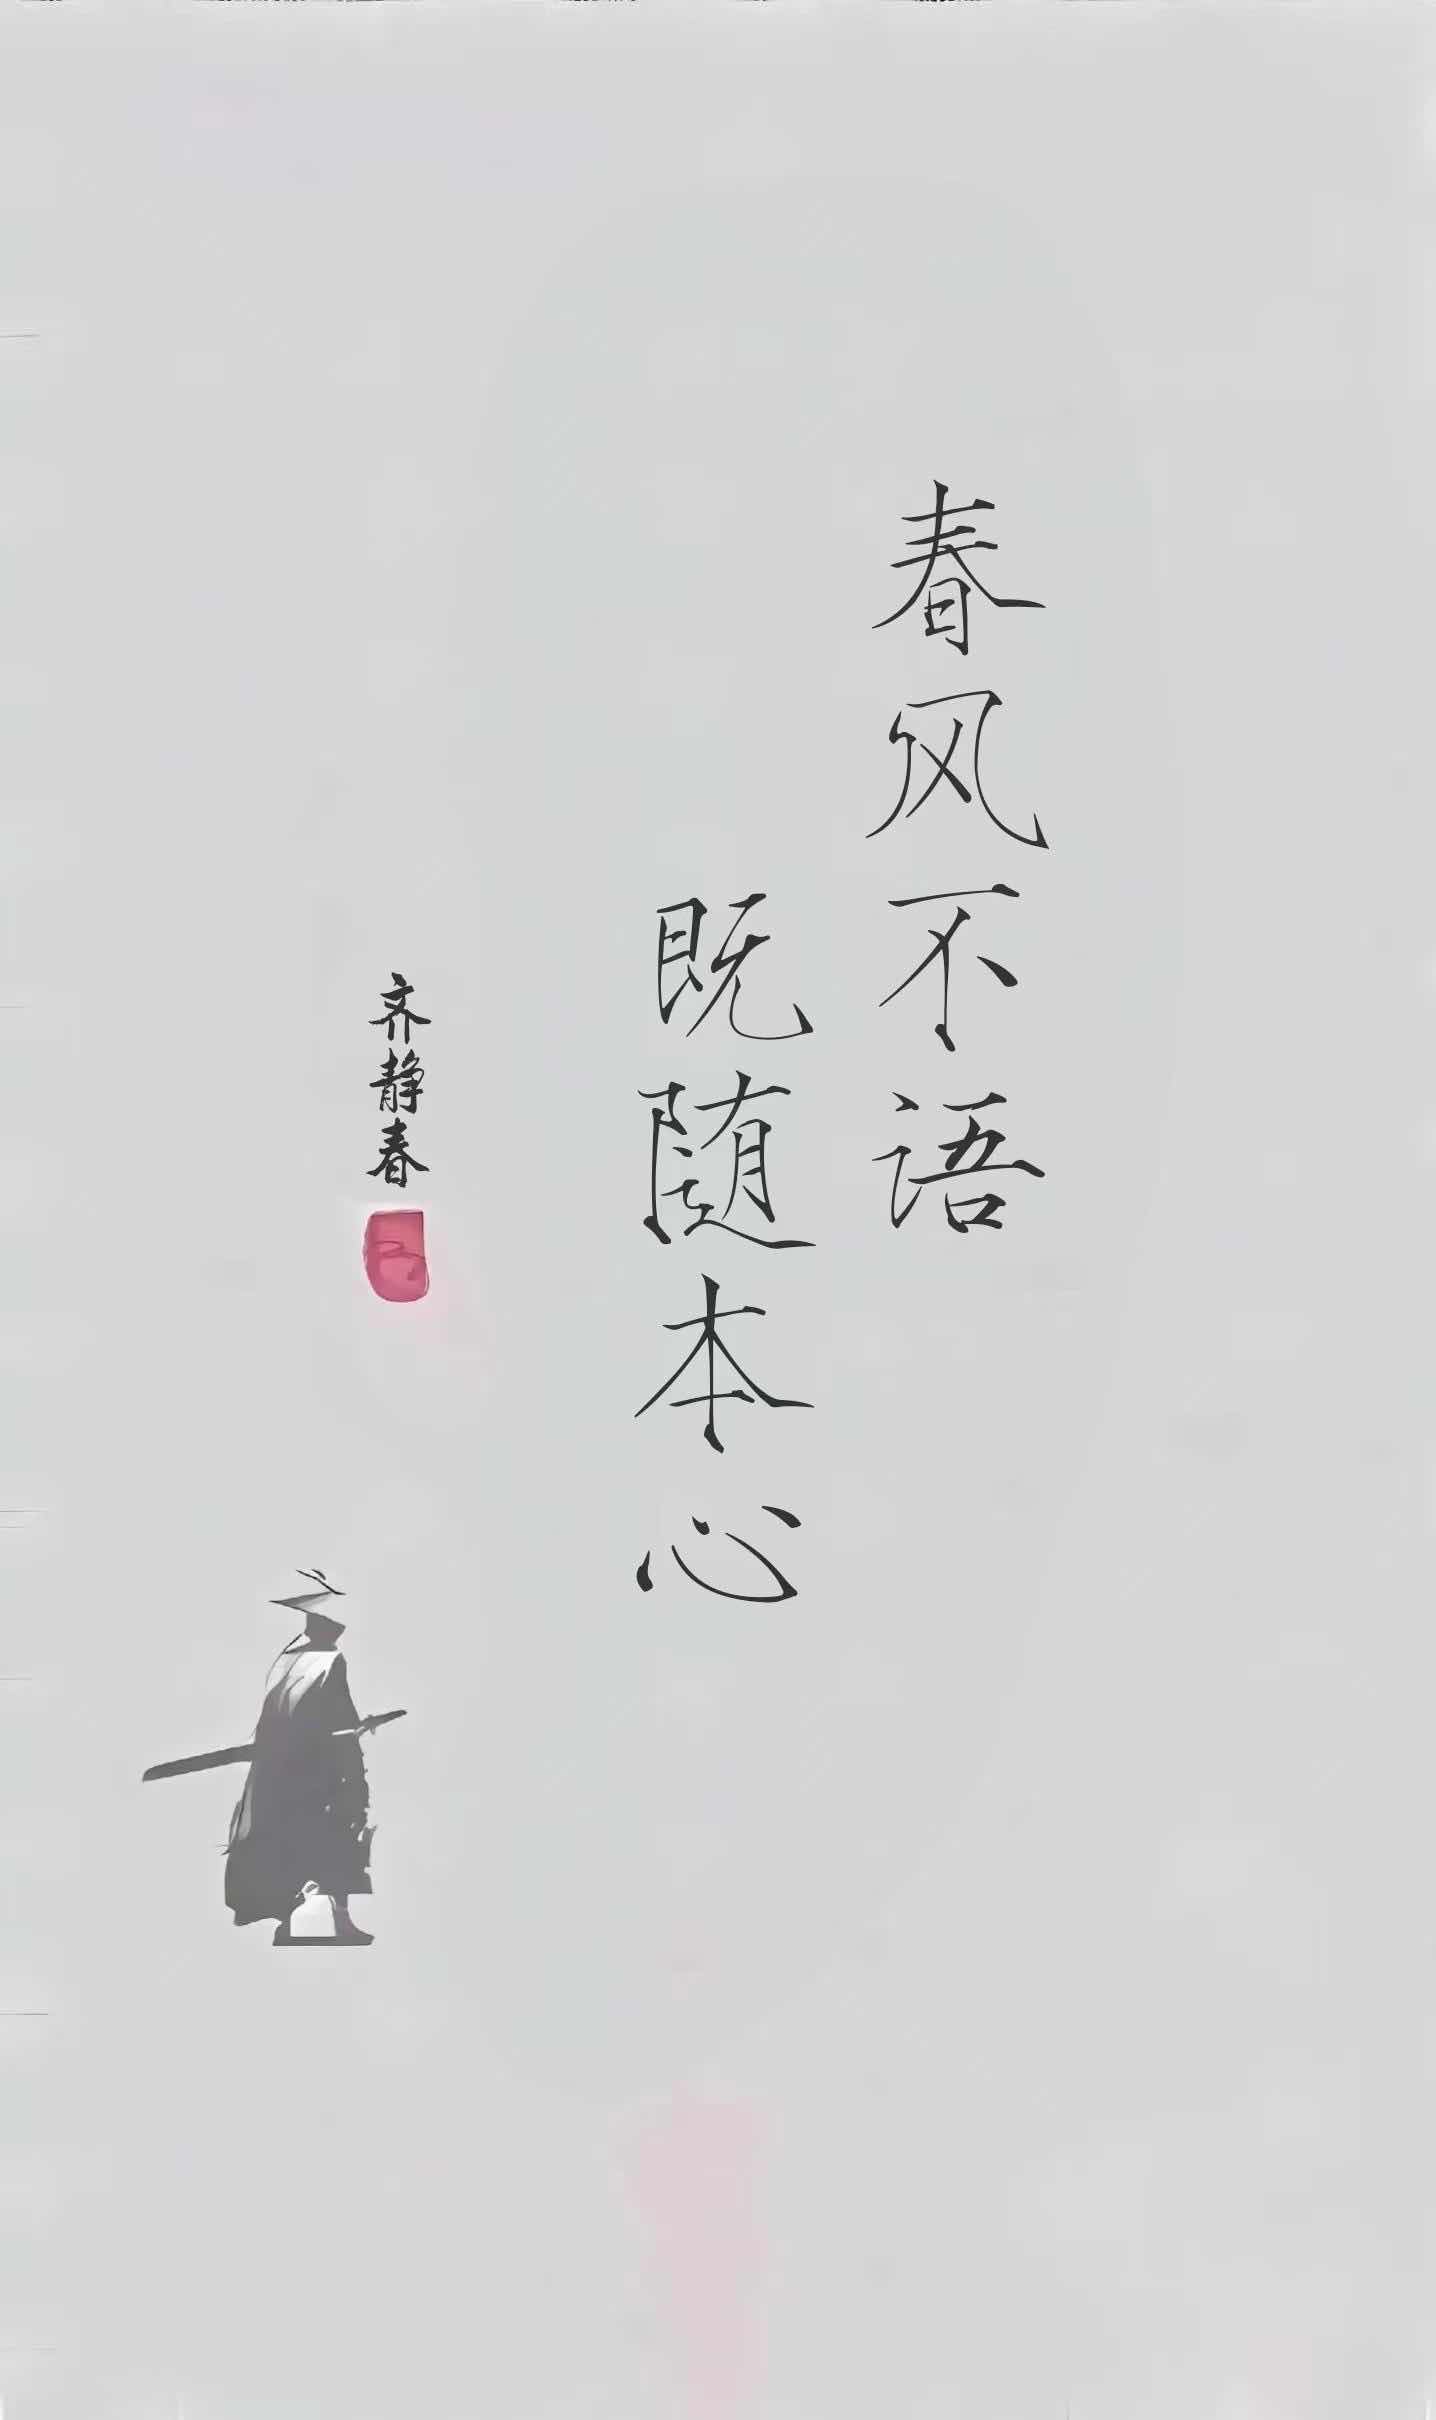 春风不语
既随本心
齐静春